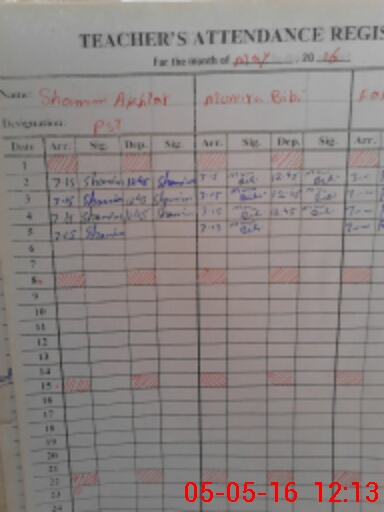 TEACHER'S ATTENDANCE REGIS
For the month of May 20 16
Name: Shamim Akhtar Munira Bibi
Designation: PST
Date Arr. Sig. Dep. Sig. Arr. Sig. Dep. Sig. Arr.
1
2 7-15 Shamim 12:45 Shamim 7-15 Bibi 12:45 Bibi
3 7-15 Shamim 12:45 Shamim 7-15 Bibi 12:45 Bibi
4 7-15 Shamim 12:45 Shamim 7-15 Bibi 12:45 Bibi
5 7-15 Shamim 7-15 Bibi
6
7
8
9
10
11
12
13
14
15
16
17
18
19
20
21
22
23
24
05-05-16 12:13